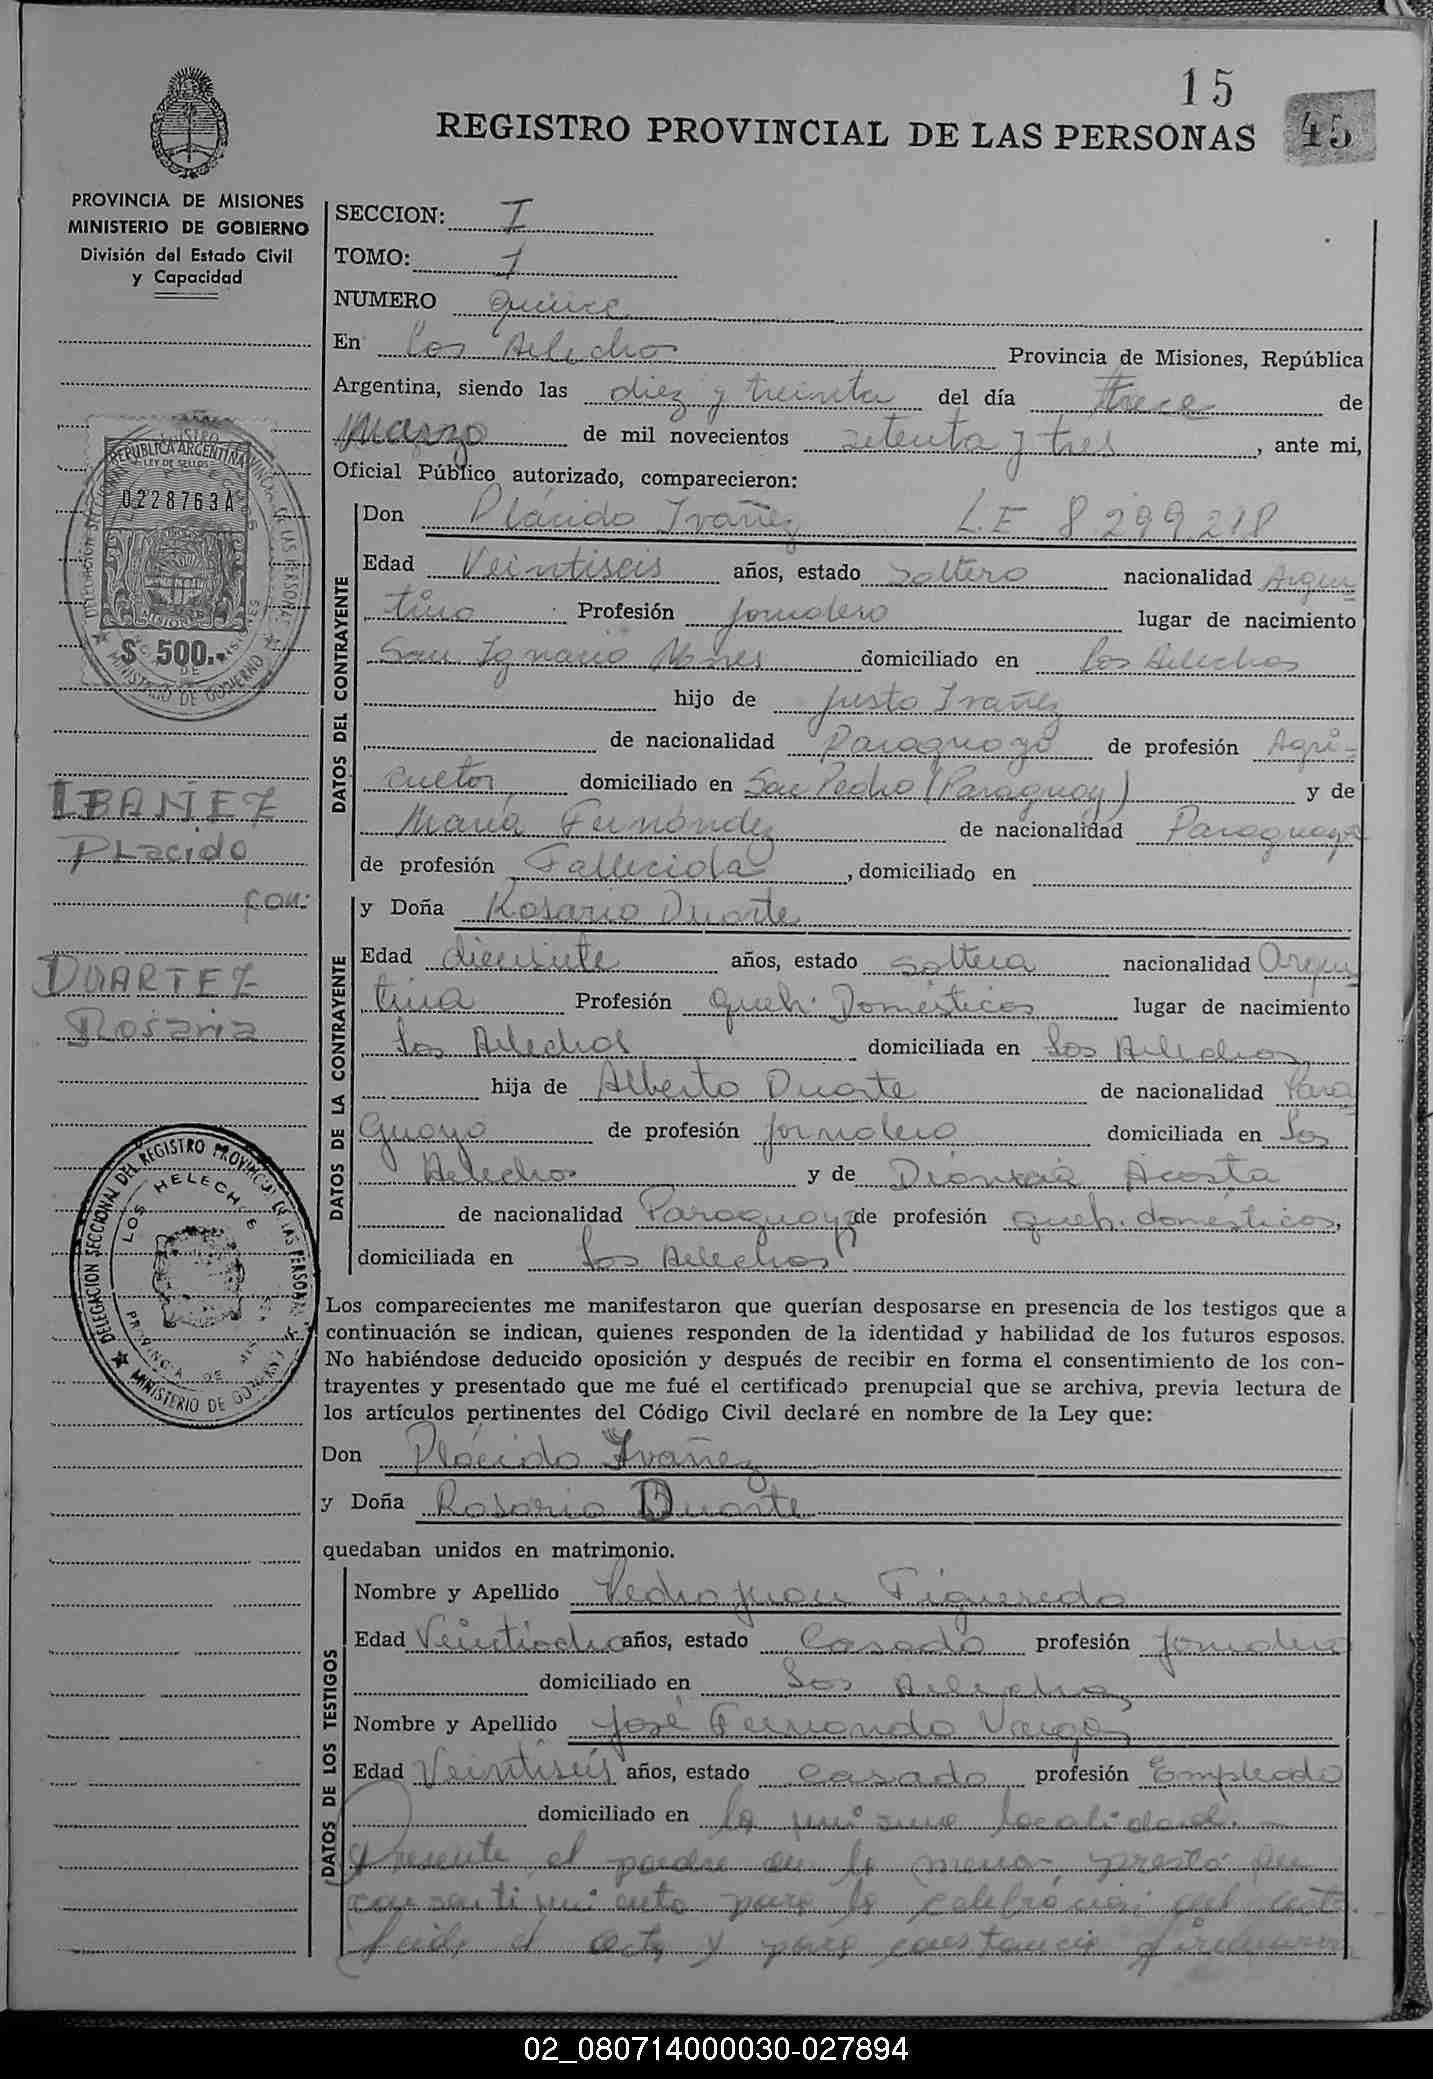 15
REGISTRO PROVINCIAL DE LAS PERSONAS
45
PROVINCIA DE MISIONES
MINISTERIO DE GOBIERNO
División del Estado Civil
y Capacidad
SECCION: I
TOMO: 1
NUMERO quince
En Los Helechos Provincia de Misiones, República
Argentina, siendo las diez y treinta del día trece de
Marzo de mil novecientos setenta y tres, ante mi,
Oficial Público autorizado, comparecieron:
REPUBLICA ARGENTINA
LEY DE SELLOS
0228763A
$ 500.-
MINISTERIO DE GOBIERNO
DATOS DEL CONTRAYENTE
Don Plácido Ivañez L.E 8.299.218
Edad Veintiseis años, estado soltero nacionalidad Argen
tino Profesión jornalero lugar de nacimiento
San Ignacio Mnes domiciliado en Los Helechos
hijo de Justo Ivañez
de nacionalidad Paraguayo de profesión Agri-
cultor domiciliado en San Pedro (Paraguay) y de
María Fernández de nacionalidad Paraguaya
de profesión Fallecida, domiciliado en
IBAÑEZ
Placido
con:
DUARTEZ
Rosaria
DATOS DE LA CONTRAYENTE
y Doña Rosario Duarte
Edad diecisiete años, estado soltera nacionalidad Argen
tina Profesión queh. Domésticos lugar de nacimiento
Los Helechos domiciliada en Los Helechos
hija de Alberto Duarte de nacionalidad Para
guayo de profesión jornalero domiciliada en Los
Helechos y de Dionicia Acosta
de nacionalidad Paraguaya de profesión queh. domésticos,
domiciliada en Los Helechos
DELEGACION SECCIONAL DEL REGISTRO PROVINCIAL DE LAS PERSONAS
LOS HELECHOS
PROVINCIA DE MISIONES
MINISTERIO DE GOBIERNO
Los comparecientes me manifestaron que querían desposarse en presencia de los testigos que a
continuación se indican, quienes responden de la identidad y habilidad de los futuros esposos.
No habiéndose deducido oposición y después de recibir en forma el consentimiento de los con-
trayentes y presentado que me fué el certificado prenupcial que se archiva, previa lectura de
los artículos pertinentes del Código Civil declaré en nombre de la Ley que:
Don Plácido Ivañez
y Doña Rosario Duarte
quedaban unidos en matrimonio.
DATOS DE LOS TESTIGOS
Nombre y Apellido Pedro Juan Figueredo
Edad Veintiocho años, estado Casado profesión jornalero
domiciliado en Los Helechos
Nombre y Apellido José Fernando Vargas
Edad Veintiseis años, estado casado profesión Empleado
domiciliado en la misma localidad.
Presente el padre de la menor prestó su
consentimiento para la celebración del acto.
Leida el acta y para constancia firmaron
02_080714000030-027894